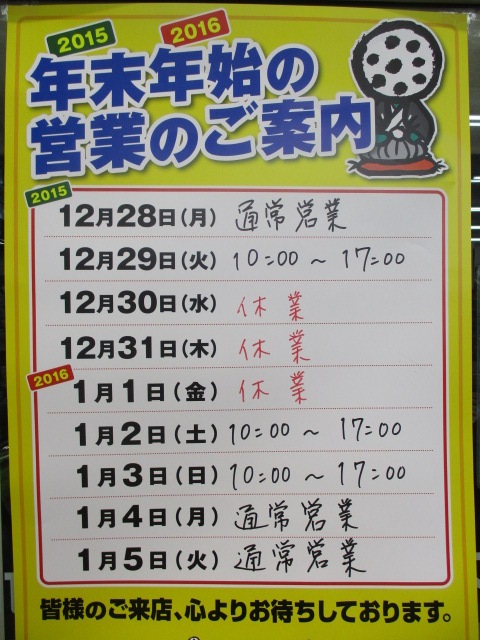 2015 2016
年末年始の
営業のご案内
2015
12月28日(月) 通常営業
12月29日(火) 10:00 ~ 17:00
12月30日(水) 休業
12月31日(木) 休業
2016
1月1日(金) 休業
1月2日(土) 10:00 ~ 17:00
1月3日(日) 10:00 ~ 17:00
1月4日(月) 通常営業
1月5日(火) 通常営業
皆様のご来店、心よりお待ちしております。